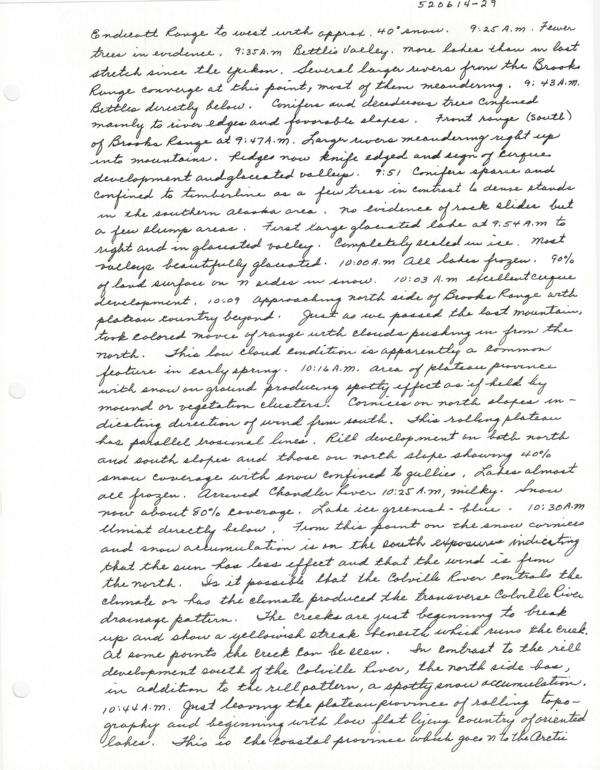 520614-29
Endicott Range to west with approx. 40° snow. 9:25 A.M. Fewer
trees in evidence. 9:35 A.M Bettles Valley. More lakes than in last
stretch since the Yukon. Several larger rivers from the Brooks
Range converge at this point, most of them meandering. 9:43 A.M.
Bettles directly below. Conifers and deciduous trees confined
mainly to river edges and favorable slopes. Front range (south)
of Brooks Range at 9:47 A.M. Larger rivers meandering right up
into mountains. Ridges now knife edged and sign of cirque
development and glaciated valleys. 9:51 Conifers sparse and
confined to timberline as a few trees in contrast to dense stands
in the southern Alaska area. No evidence of rock slides but
a few slump areas. First large glaciated lake at 9:54 A.M to
right and in glaciated valley. Completely sealed in ice. Most
valleys beautifully glaciated. 10:00 A.M All lakes frozen. 90%
of land surface on N sides in snow. 10:03 A.M excellent cirque
development. 10:09 Approaching north side of Brooks Range with
plateau country beyond. Just as we passed the last mountain,
took colored movie of range with clouds pushing in from the
north. This low cloud condition is apparently a common
feature in early spring. 10:16 A.M. area of plateau province
with snow on ground producing spotty effect as if held by
mound or vegetation clusters. Cornices on north slopes in-
dicating direction of wind from south. This rolling plateau
has parallel erosional lines. Rill development on both north
and south slopes and those on north slope showing 40%
snow coverage with snow confined to gullies. Lakes almost
all frozen. Arrived Chandler River 10:25 A.M, milky. Snow
now about 80% coverage. Lake ice greenish-blue. 10:30 A.M
Umiat directly below. From this point on the snow cornices
and snow accumulation is on the south exposures indicating
that the sun has less effect and that the wind is from
the north. Is it possible that the Colville River controls the
climate or has the climate produced the transverse Colville River
drainage pattern. The creeks are just beginning to break
up and show a yellowish streak beneath which runs the creek.
At some points the creek can be seen. In contrast to the rill
development south of the Colville River, the north side has,
in addition to the rill pattern, a spotty snow accumulation.
10:44 A.M. Just leaving the plateau province of rolling topo-
graphy and beginning with low flat lying country of oriented
lakes. This is the coastal province which goes N to the Arctic